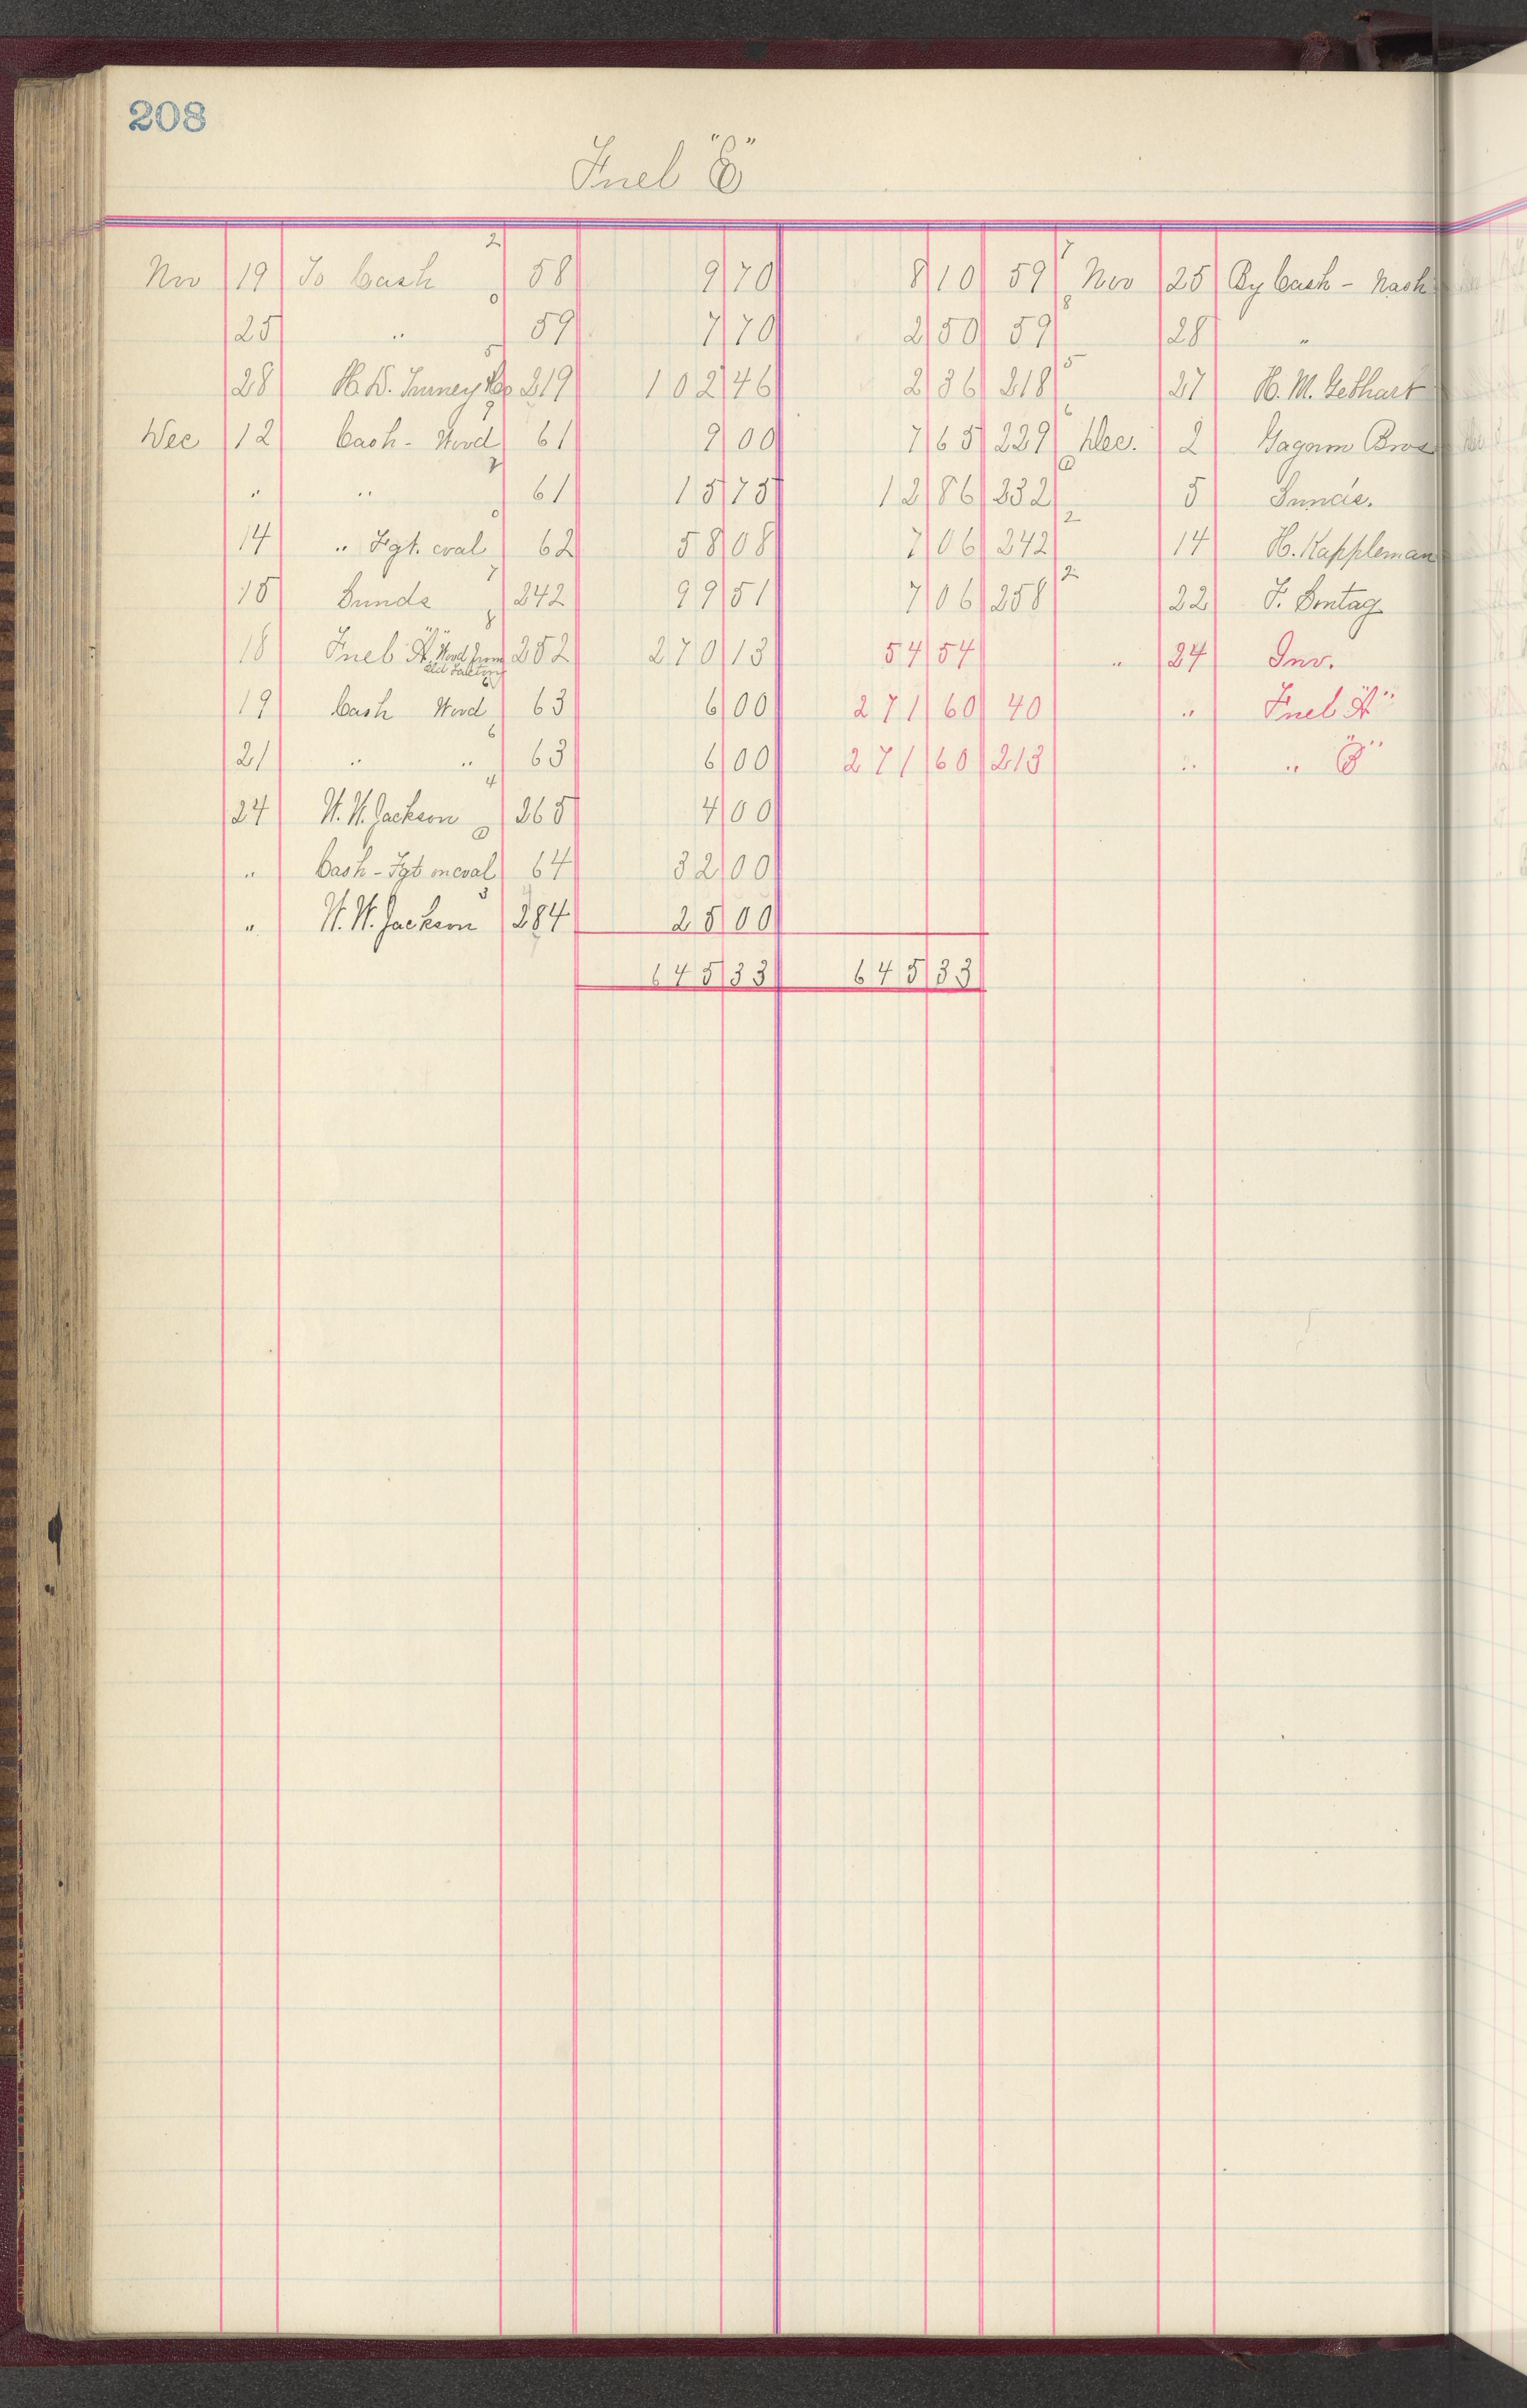 208
Fuel "C"
Nov 19 To Cash 2 58 9 70 8 10 59 7 Nov 25 By Cash - Nash
25 " 0 59 7 70 2 50 59 8 28 "
28 5 219 102 46 2 36 218 5 27 H. M. Gebhart
Dec 12 Cash - Wood 9 61 9 00 7 65 229 6 Dec. 2 Bros
" " 7 61 15 75 12 86 232 @ 5 Sunds.
14 " Fgt. coal 0 62 58 08 7 06 242 2 14 H. Kappleman
15 Sunds 7 242 99 51 7 06 258 2 22 F. Sontag
18 Fuel "A" Wood from 8 252 270 13 54 54 " 24 Inv.
19 Cash Wood 6 63 6 00 271 60 40 " Fuel "A"
21 " " 6 63 6 00 271 60 213 " " "B"
24 W. W. Jackson 4 265 4 00
" Cash - Fgt on coal @ 64 32 00
" W. W. Jackson 3 284 25 00
645 33 645 33